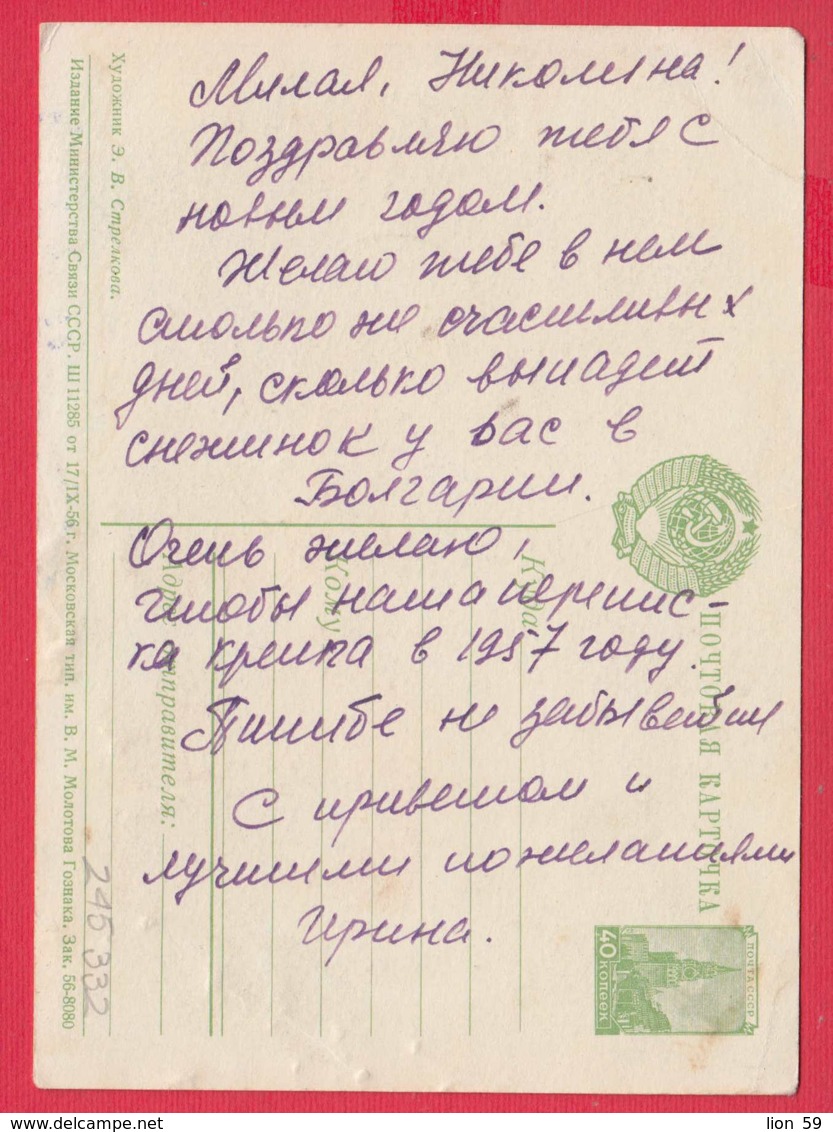 Милая, Николина!
Поздравляю тебя с
новым годом.
Желаю тебе в нем
столько же счастливых
дней, сколько выпадет
снежинок у вас в
Болгарии.
Очень желаю,
чтобы наша перепис-
ка крепла в 1957 году.
Пишите не забывайте
С приветом и
лучшими пожеланиями
Ирина.
Художник Э. В. Стрелкова.
Издание Министерства Связи СССР. Ш 11285 от 17/IX-56 г. Московская тип. им. В. М. Молотова Гознака. Зак. 56-8080
ПОЧТОВАЯ КАРТОЧКА
Куда
Кому
Адрес отправителя:
40 КОПЕЕК
ПОЧТА СССР
245 332
lion 59